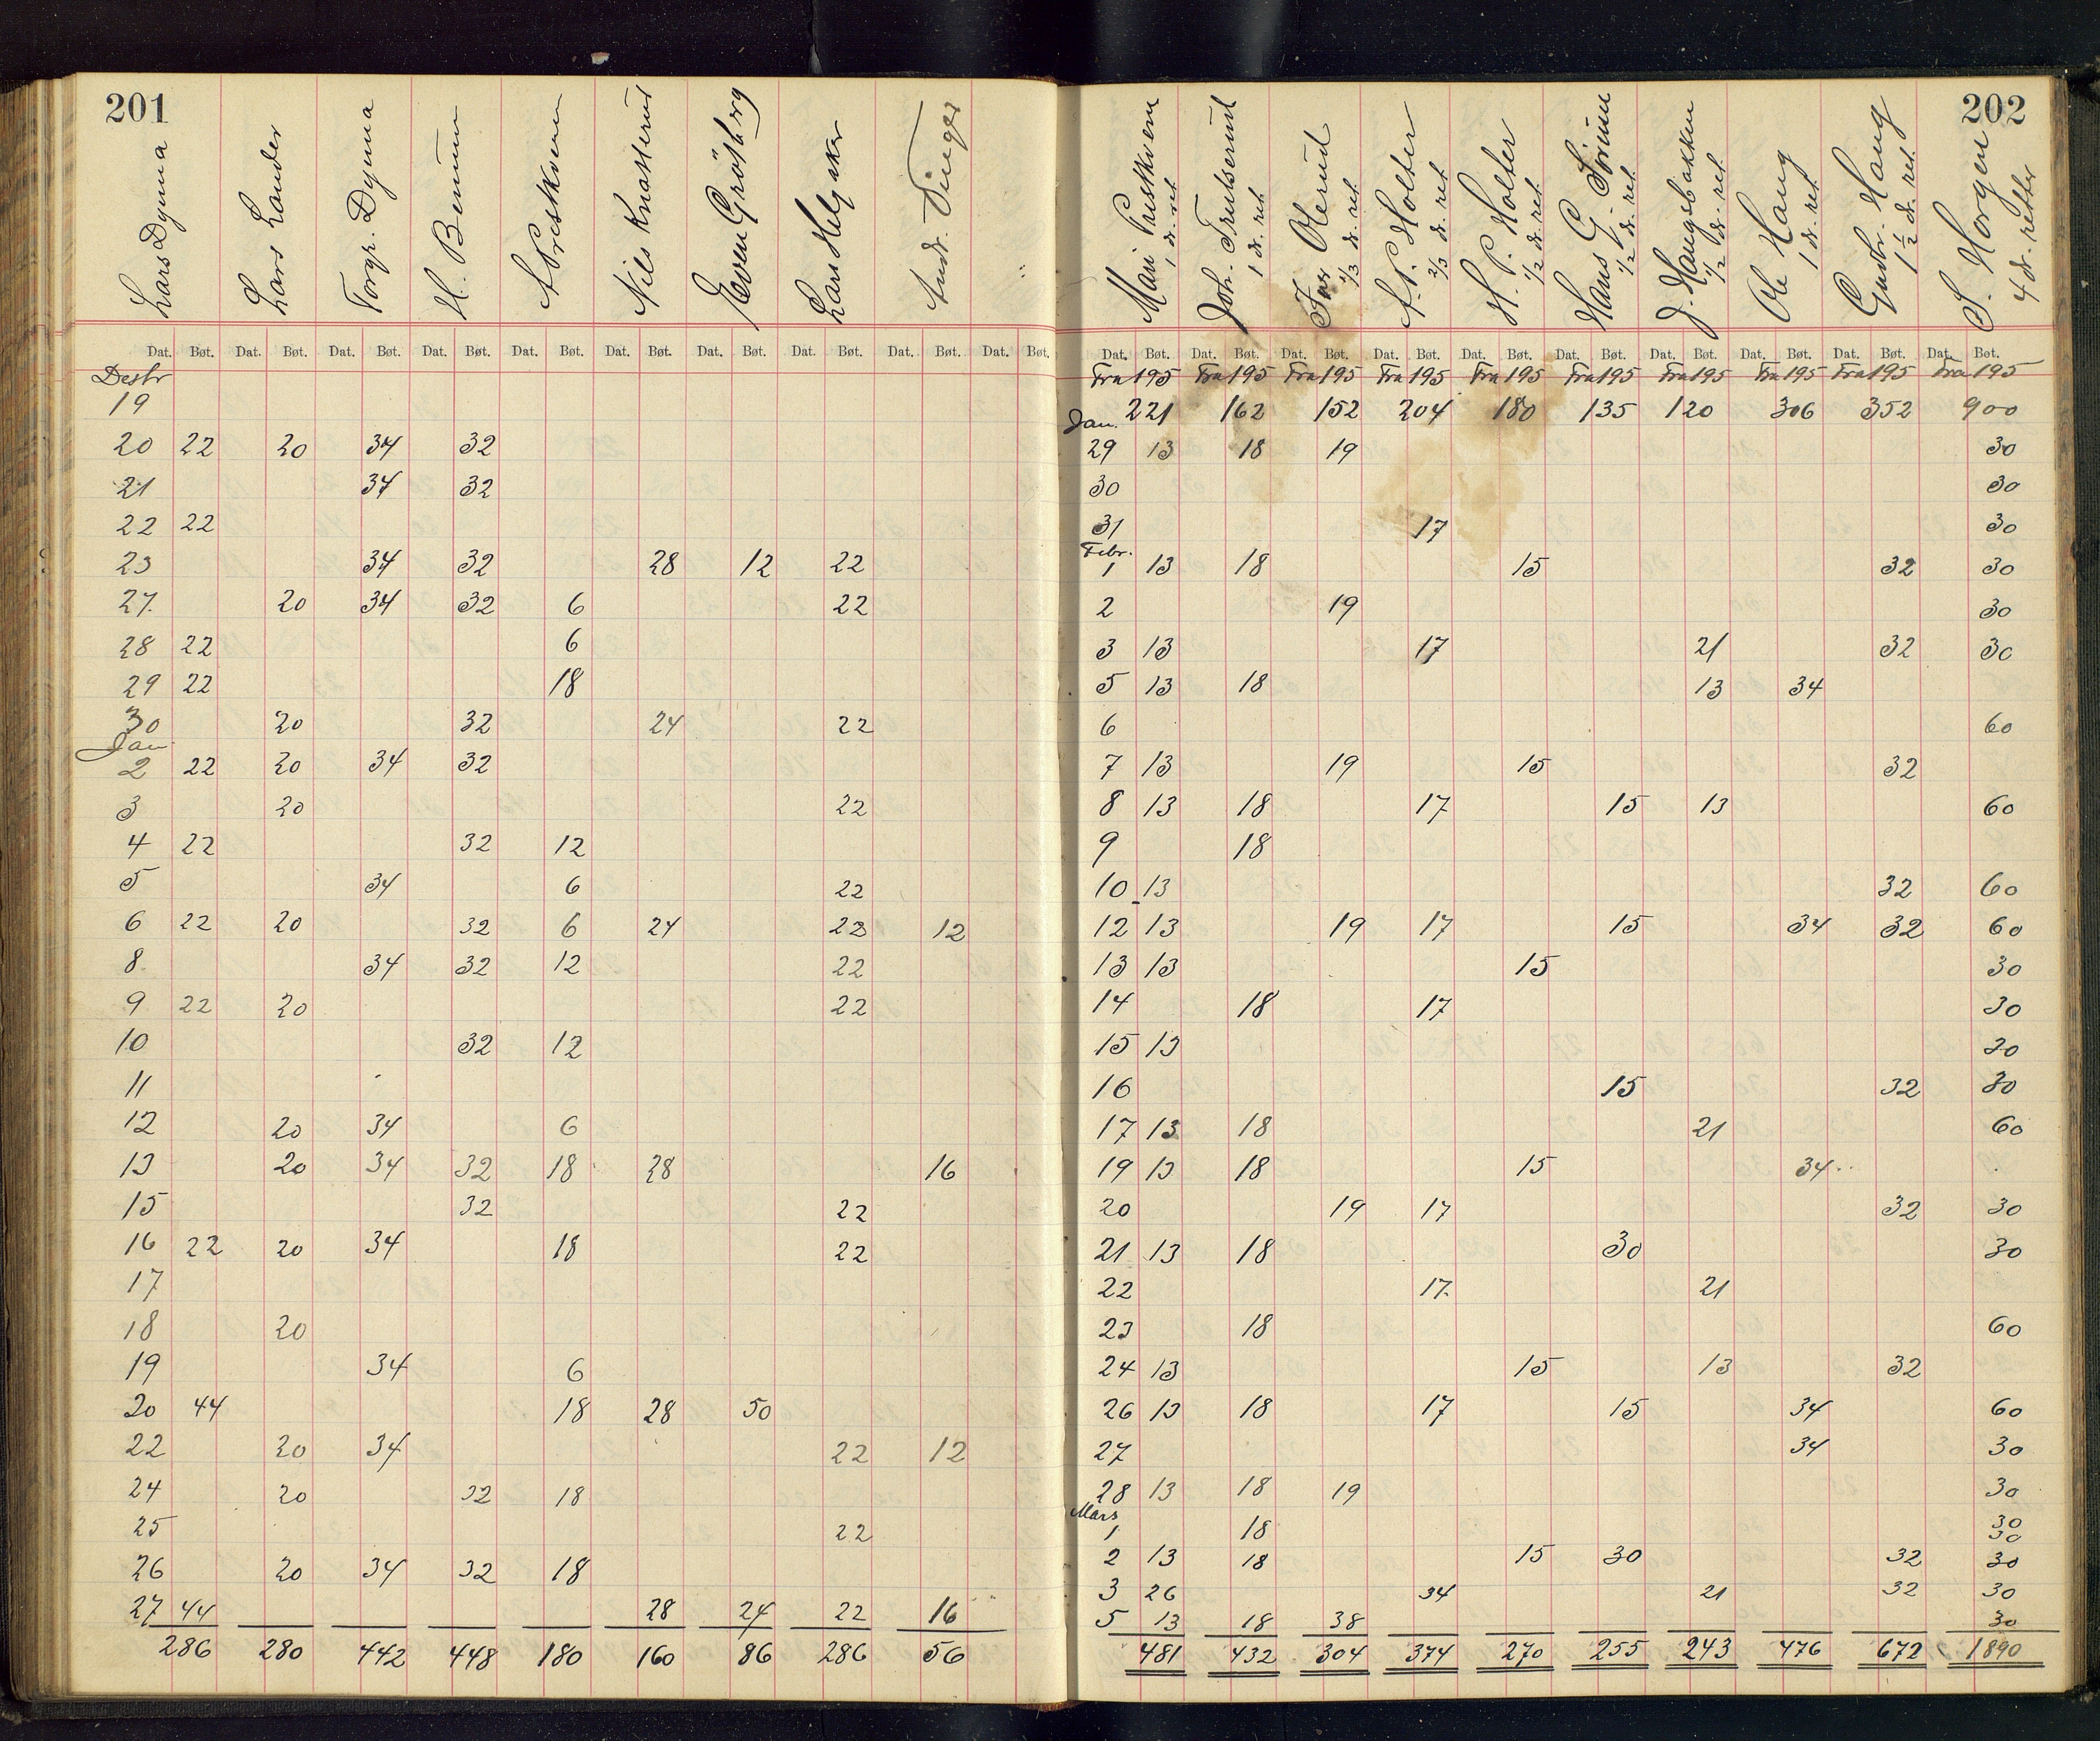 201
Lars Dyrna Lars Lander Torgr. Dyrna H. Berum A Præstkvern Nils Knatterud Even Grøtberg Lars Helgaker Andr. Tinger
Dat. Bøt. Dat. Bøt. Dat. Bøt. Dat. Bøt. Dat. Bøt. Dat. Bøt. Dat. Bøt. Dat. Bøt. Dat. Bøt. Dat. Bøt.
Desbr
19
20 22 20 34 32
21 34 32
22 22
23 34 32 28 12 22
27. 20 34 32 6 22
28 22 6
29 22 18
30 20 32 24 22
Jan
2 22 20 34 32
3 20 22
4 22 32 12
5 34 6 22
6 22 20 32 6 24 22 12
8. 34 32 12 22
9 22 20 22
10 32 12
11
12 20 34 6
13 20 34 32 18 28 16
15 32 22
16 22 20 34 18 22
17
18 20
19 34 6
20 44 18 28 50
22 20 34 22 12
24 20 32 18
25 22
26 20 34 32 18
27 44 28 24 22 16
286 280 442 448 180 160 86 286 56
202
Mari Præstkvern 1 dr. ret. Joh. Trulserud 1 dr. ret. Iver Olerud 2/3 dr. ret. A. P. Holter 2/3 dr. ret. H. P. Holter 1/2 dr. ret. Hans G. 1/2 dr. ret. J. Haugsbakken 1/2 dr. ret. Ole Haug 1 dr. ret. Gudbr. Haug 1 1/2 dr. ret. S. Horgen 4 dr. retter
Dat. Bøt. Dat. Bøt. Dat. Bøt. Dat. Bøt. Dat. Bøt. Dat. Bøt. Dat. Bøt. Dat. Bøt. Dat. Bøt. Dat. Bøt.
Fra 195 Fra 195 Fra 195 Fra 195 Fra 195 Fra 195 Fra 195 Fra 195 Fra 195 Fra 195
221 162 152 204 180 135 120 306 352 900
Jan.
29 13 18 19 30
30 30
31 17 30
Febr.
1 13 18 15 32 30
2 19 30
3 13 17 21 32 30
5 13 18 13 34
6 60
7 13 19 15 32
8 13 18 17 15 13 60
9 18
10 13 32 60
12 13 19 17 15 34 32 60
13 13 15 30
14 18 17 30
15 13 30
16 15 32 30
17 13 18 21 60
19 13 18 15 34
20 19 17 32 30
21 13 18 30 30
22 17. 21
23 18 60
24 13 15 13 32
26 13 18 17 15 34 60
27 34 30
28 13 18 19 30
Mars
1 18 30
30
2 13 18 15 30 32 30
3 26 34 21 32 30
5 13 18 38 30
481 432 304 374 270 255 243 476 672 1890